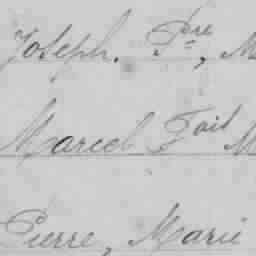 Joseph. Pre, M
Marcel Fail M
Pierre, Marie